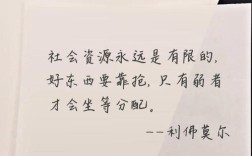 社会资源永远是有限的,
好东西要靠抢,只有弱者
才会坐等分配。
--利佛莫尔